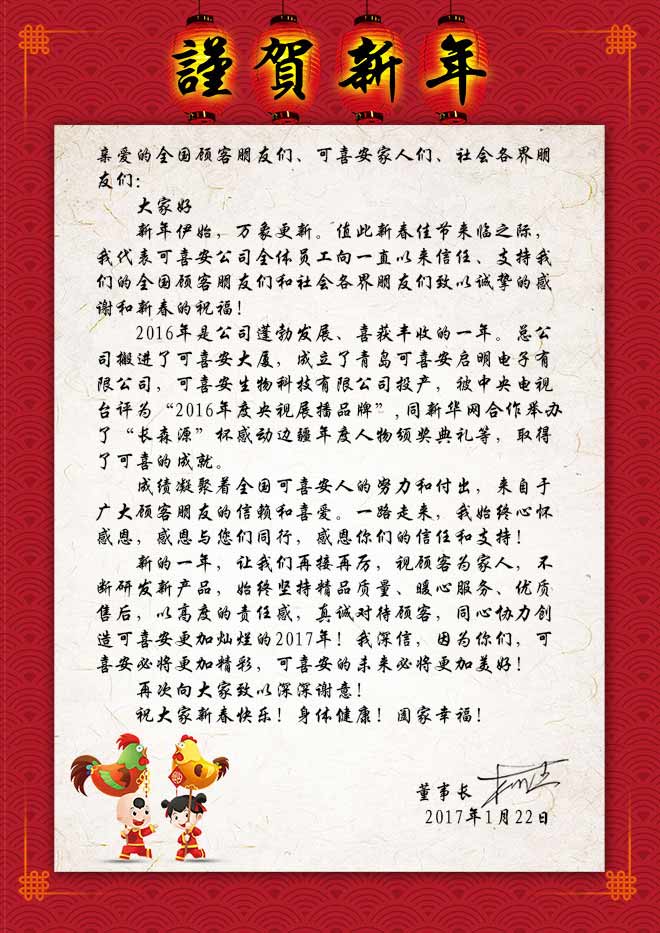 謹賀新年
亲爱的全国顾客朋友们、可喜安家人们、社会各界朋
友们：
大家好
新年伊始，万象更新。值此新春佳节来临之际，
我代表可喜安公司全体员工向一直以来信任、支持我
们的全国顾客朋友们和社会各界朋友们致以诚挚的感
谢和新春的祝福！
2016年是公司蓬勃发展、喜获丰收的一年。总公
司搬进了可喜安大厦，成立了青岛可喜安启明电子有
限公司，可喜安生物科技有限公司投产，被中央电视
台评为“2016年度央视展播品牌”，同新华网合作举办
了“长森源”杯感动边疆年度人物颁奖典礼等，取得
了可喜的成就。
成绩凝聚着全国可喜安人的努力和付出，来自于
广大顾客朋友的信赖和喜爱。一路走来，我始终心怀
感恩，感恩与您们同行，感恩你们的信任和支持！
新的一年，让我们再接再厉，视顾客为家人，不
断研发新产品，始终坚持精品质量、暖心服务、优质
售后，以高度的责任感，真诚对待顾客，同心协力创
造可喜安更加灿烂的2017年！我深信，因为你们，可
喜安必将更加精彩，可喜安的未来必将更加美好！
再次向大家致以深深谢意！
祝大家新春快乐！身体健康！阖家幸福！
董事长
2017年1月22日